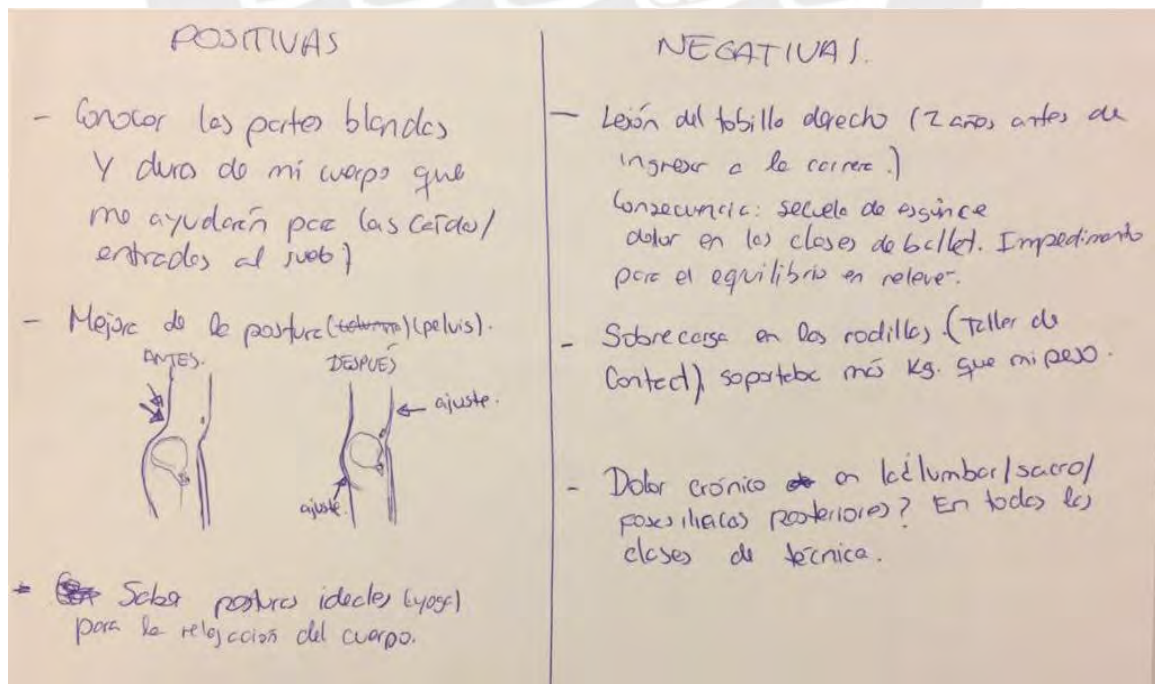 POSITIVAS
- Conocer las partes blandas
Y duras de mi cuerpo que
me ayudarán para las caídas/
entradas al suelo)
- Mejora de la postura (pelvis).
ANTES.
DESPUÉS
ajuste.
ajuste.
- Saber posturas ideales (yoga)
para la relajación del cuerpo.
NEGATIVAS.
- Lesión del tobillo derecho (2 años antes de
ingresar a la carrera.)
Consecuencia: secuela de esguince
dolor en las clases de ballet. Impedimento
para el equilibrio en relevé.
- Sobrecarga en las rodillas. (Taller de
Contact) soportaba más kg. que mi peso.
- Dolor crónico en lumbar/sacro/
posteriores? En todas las
clases de técnica.